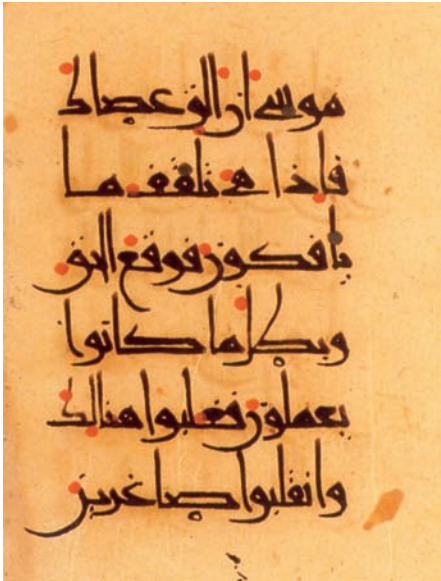 موسى ان الق عصاك
فاذا هى تلقف ما
يافكون فوقع الحق
وبطل ما كانوا
يعملون فغلبوا هنالك
وانقلبوا صاغرين